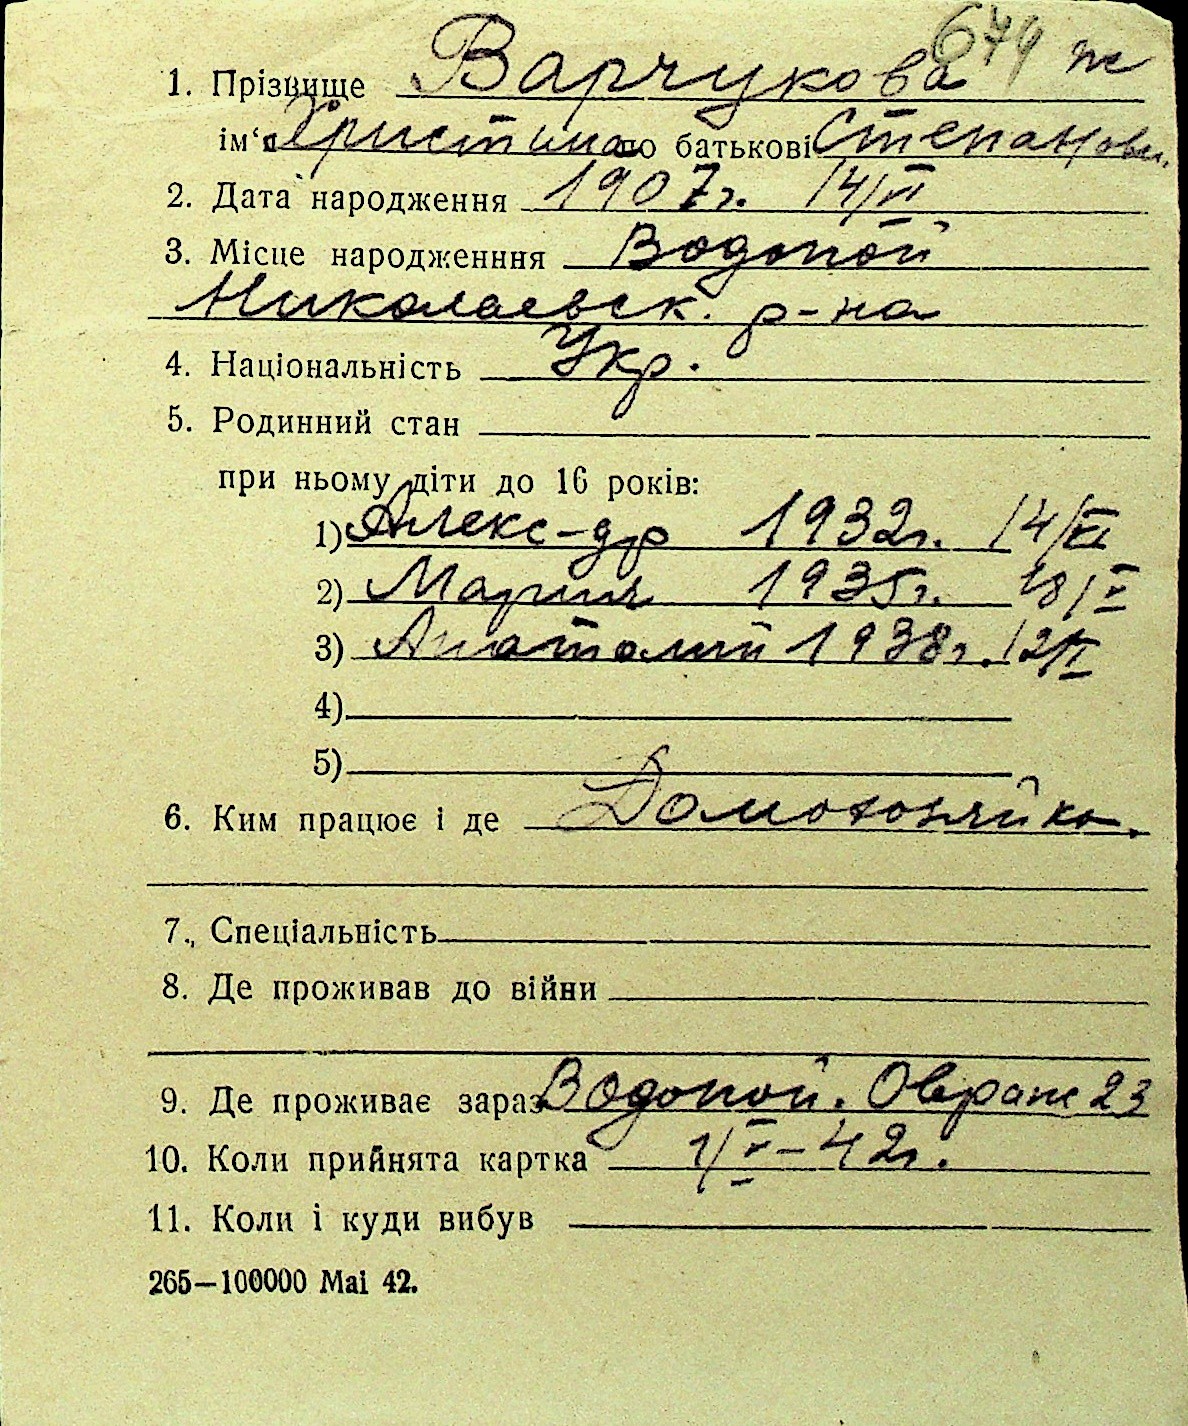 679 ж
1. Прізвище Варчукова
ім‘я Христина по батькові Степановн.
2. Дата народження 1907г. 14/VI
3. Місце народженння Водопой
Николаевск. р-на
4. Національність Укр.
5. Родинний стан
при ньому діти до 16 років:
1) Алекс-др 1932г. 14/XI
2) Мария 1935г. 18/V
3) Анатолий 1938г. 12/VI
4)
5)
6. Ким працює і де Домохозяйка.
7., Спеціальність
8. Де проживав до війни
9. Де проживає зараз Водопой. Овраж 23
10. Коли прийнята картка 1/V–42г.
11. Коли і куди вибув
265—100000 Mai 42.